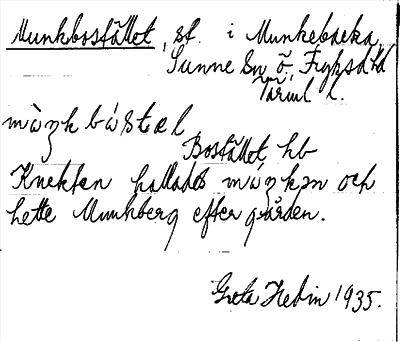 Munkbostället, st. i Munkebacka,
Sunne sn ö. Fryksdal
Värml l.
mùŋk bɷ́stæl
Bostället, hb
Knekten kallades mùŋkən och
hette Munkberg efter gården.
Greta Hedin 1935.